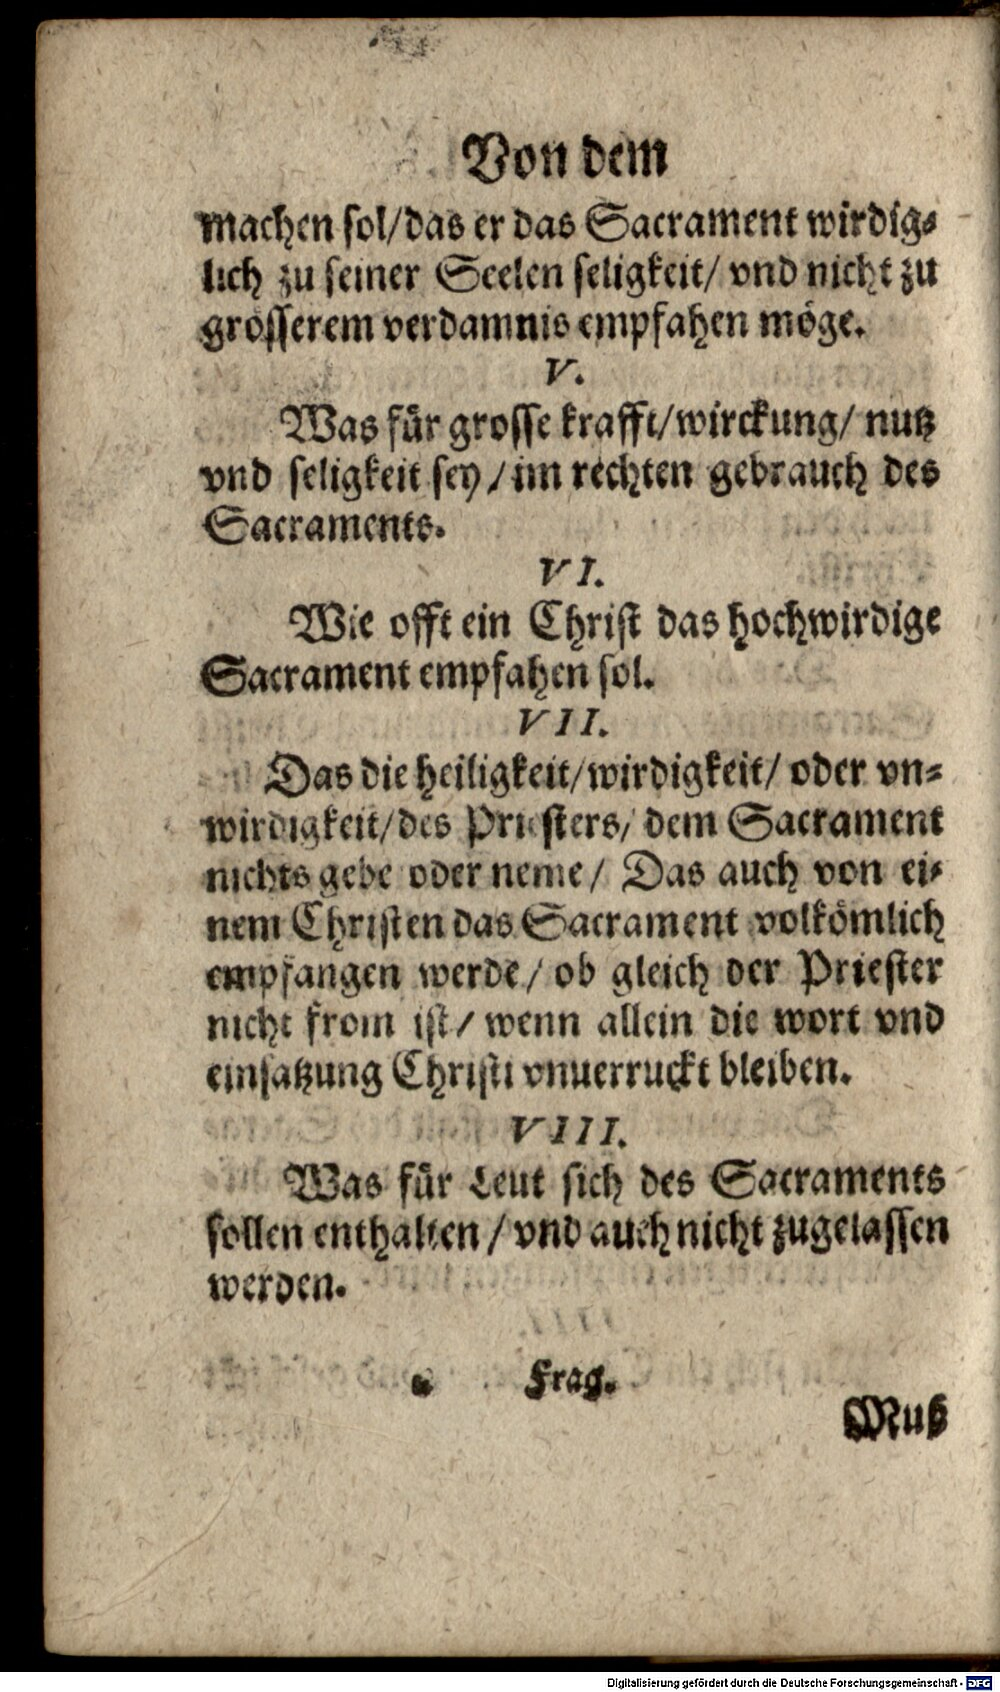 Von dem
machen sol/das er das Sacrament wirdig⸗
lich zu seiner Seelen seligkeit/ vnd nicht zu
grösserem verdamnis empfahen möge.
V.
Was für grosse krafft/wirckung/ nutz
vnd seligkeit sey/im rechten gebrauch des
Sacraments.
VI.
Wie offt ein Christ das hochwirdige
Sacrament empfahen sol.
VII.
Das die heiligkeit/wirdigkeit/ oder vn⸗
wirdigkeit/des Priesters/ dem Sacrament
nichts gebe oder neme/ Das auch von ei⸗
nem Christen das Sacrament volkömlich
empfangen werde/ ob gleich der Priester
nicht from ist/ wenn allein die wort vnd
einsatzung Christi vnuerruckt bleiben.
VIII.
Was für Leut sich des Sacraments
sollen enthalten/ vnd auch nicht zugelassen
werden.
Frag.
Muß
Digitalisierung gefördert durch die Deutsche Forschungsgemeinschaft - DFG